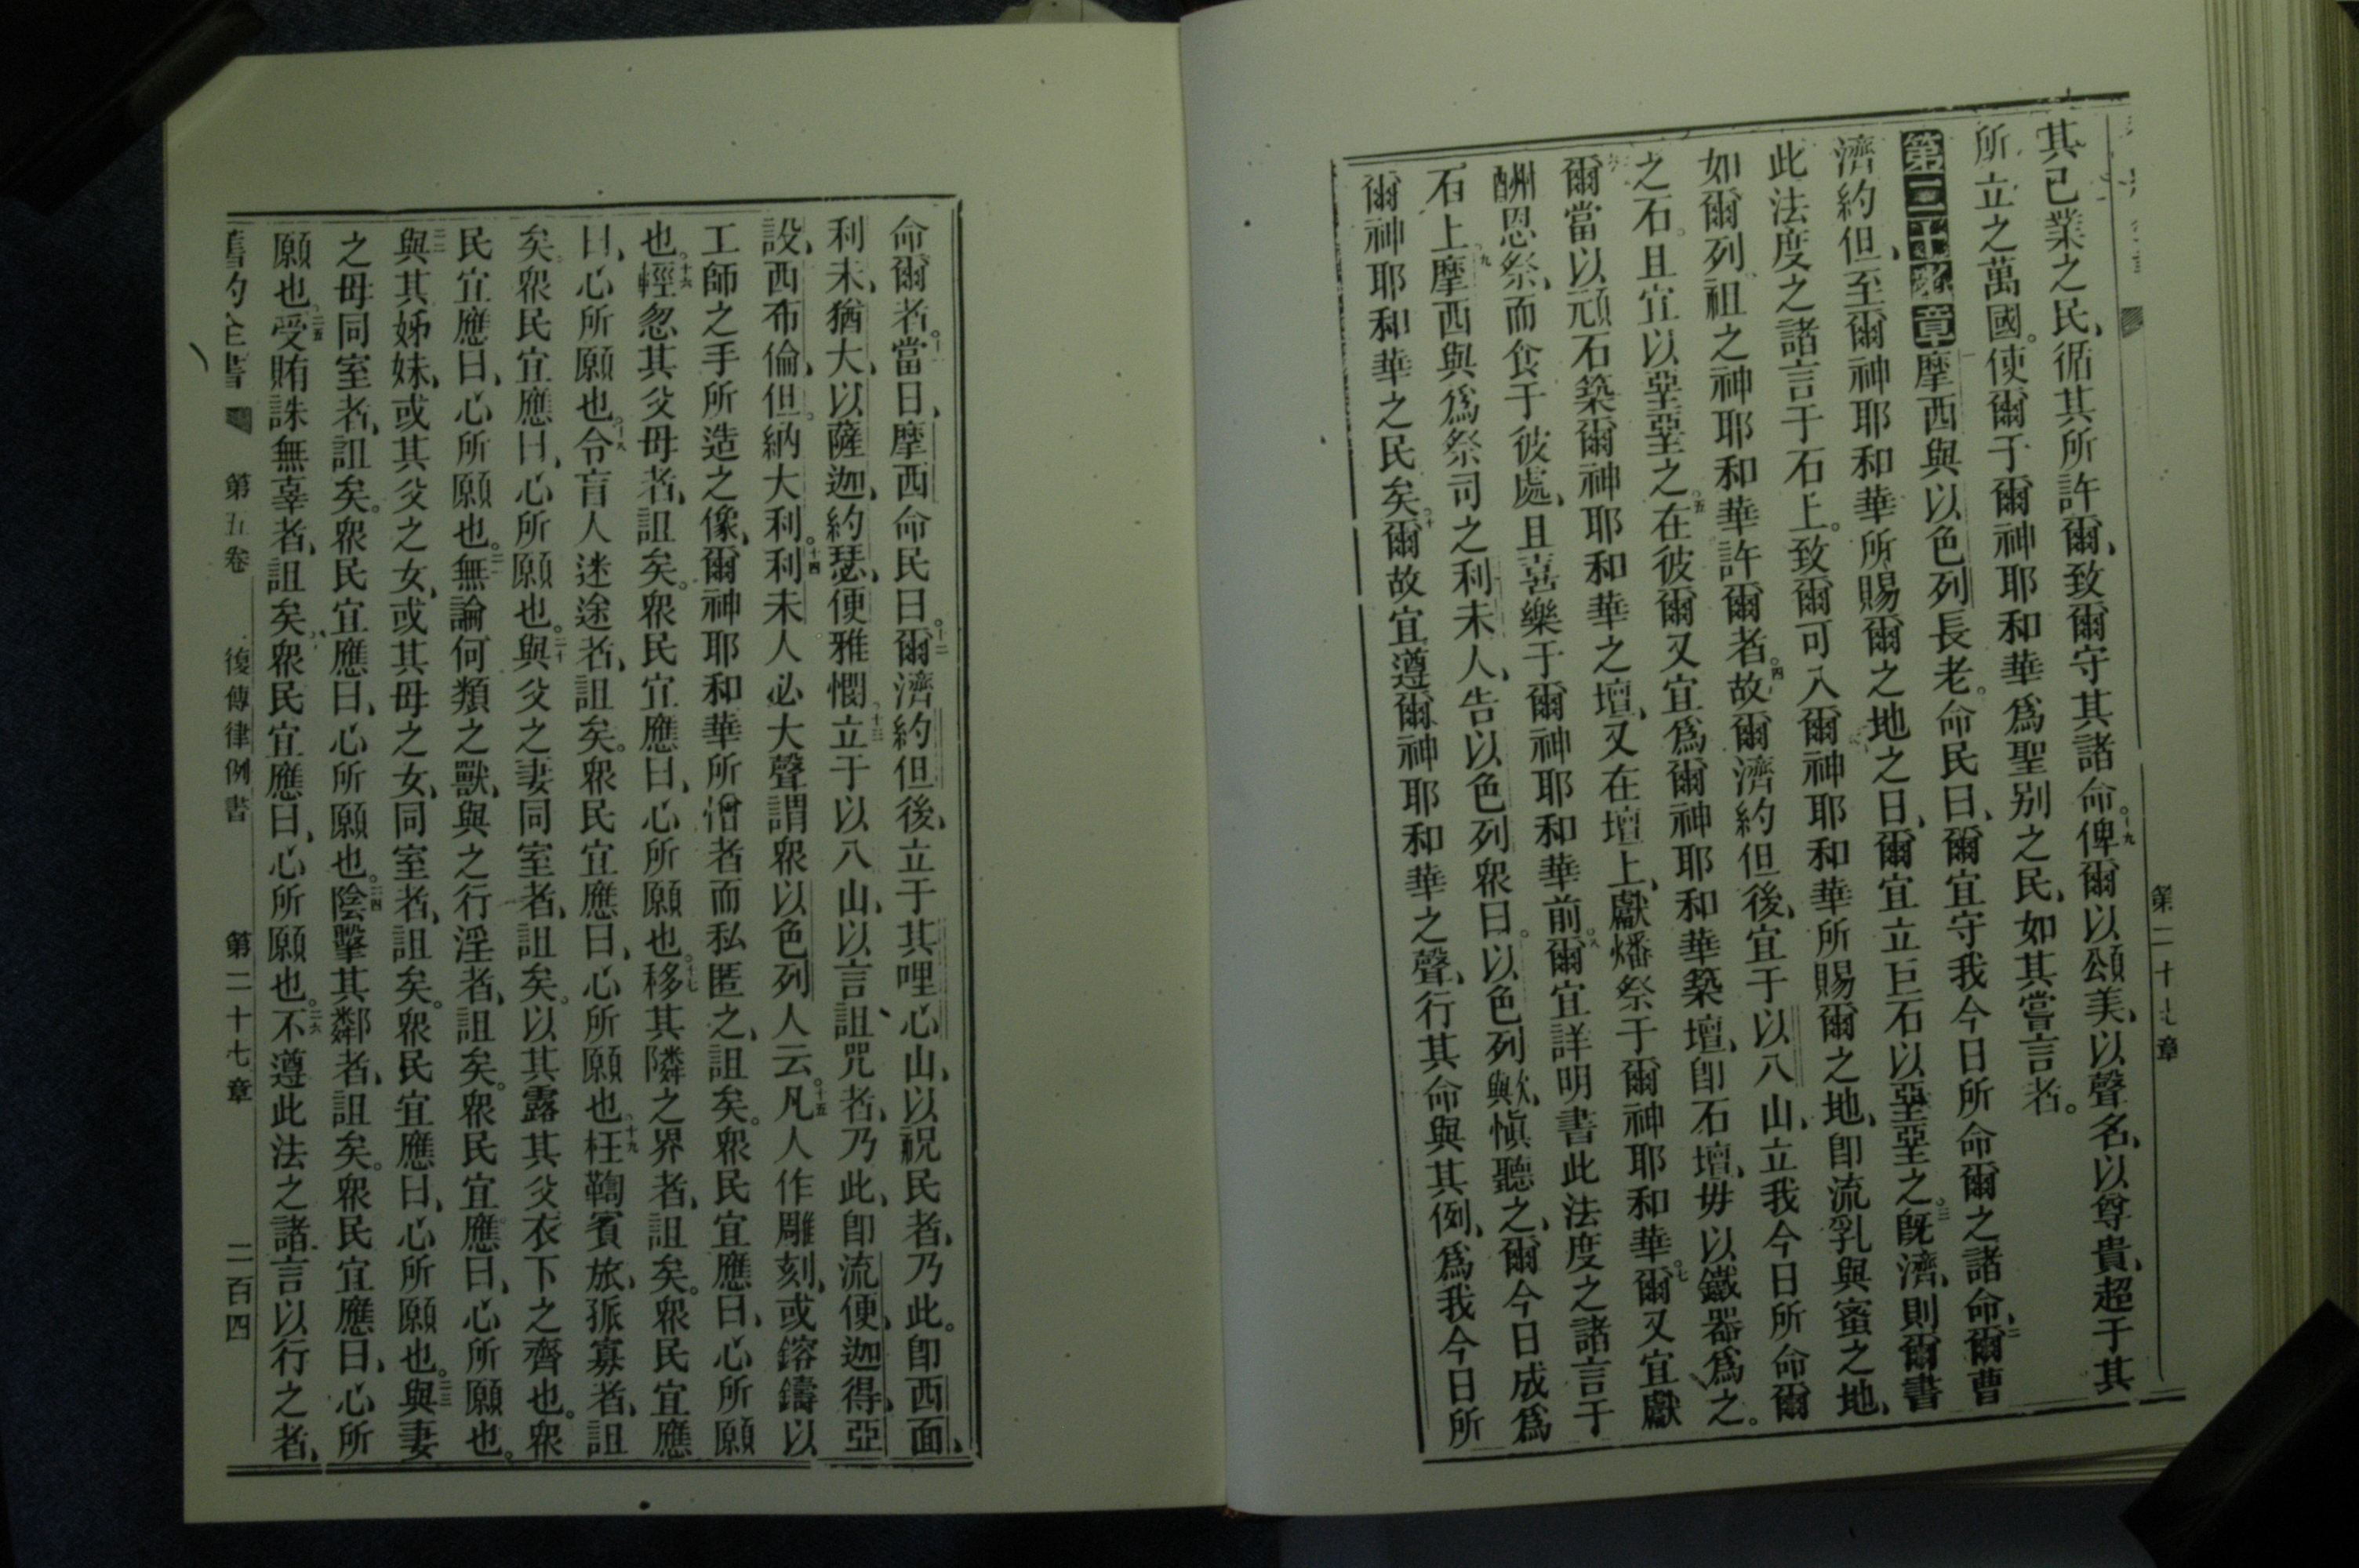 第二十七章
其己業之民、循其所許爾、致爾守其諸命。十九俾爾以頌美、以聲名、以尊貴、超于其
所立之萬國。使爾于爾神耶和華爲聖别之民、如其嘗言者。
第二十七章一摩西與以色列長老。命民曰、爾宜守我今日所命爾之諸命、二爾曹
濟約但、至爾神耶和華所賜爾之地之日、爾宜立巨石以堊堊之。三既濟、則爾書
此法度之諸言于石上。致爾可入爾神耶和華所賜爾之地、即流乳與蜜之地、
如爾列祖之神耶和華許爾者。四故爾濟約但後、宜于以八山、立我今日所命爾
之石。且宜以堊堊之。五在彼爾又宜爲爾神耶和華築壇、即石壇、毋以鐵器爲之。
六爾當以頑石築爾神耶和華之壇、又在壇上、獻燔祭于爾神耶和華。七爾又宜獻
酬恩祭、而食于彼處、且喜樂于爾神耶和華前。八爾宜詳明書此法度之諸言于
石上。九摩西與爲祭司之利未人、告以色列衆曰。以色列歟、愼聽之、爾今日成爲
爾神耶和華之民矣。十爾故宜遵爾神耶和華之聲、行其命與其例、爲我今日所
命爾者。十一當日、摩西命民曰。十二爾濟約但後、立于其哩心山、以祝民者、乃此。即西面、
利未、猶大、以薩迦、約瑟、便雅憫。十三立于以八山、以言詛咒者、乃此、即流便、迦得、亞
設、西布倫、但。納大利。十四利未人必大聲謂衆以色列人云。十五凡人作雕刻、或鎔鑄以
工師之手所造之像、爾神耶和華所憎者而私匿之、詛矣。衆民宜應曰、心所願
也。十六輕忽其父母者、詛矣。衆民宜應曰、心所願也。十七移其隣之界者、詛矣。衆民宜應
曰、心所願也。十八令盲人迷途者、詛矣。衆民宜應曰、心所願也。十九枉鞫賓旅、孤寡者、詛
矣。衆民宜應曰、心所願也。二十與父之妻同室者、詛矣。以其露其父衣下之齊也。衆
民宜應曰、心所願也。二一無論何類之獸、與之行淫者、詛矣。衆民宜應曰、心所願也。
二二與其姊妹、或其父之女、或其母之女、同室者、詛矣。衆民宜應曰、心所願也。二三與妻
之母同室者、詛矣。衆民宜應曰、心所願也。二四陰擊其鄰者、詛矣。衆民宜應曰、心所
願也。二五受賄誅無辜者、詛矣、衆民宜應曰、心所願也。二六不遵此法之諸言以行之者、
舊約全書 第五卷 復傳律例書 第二十七章 二百四